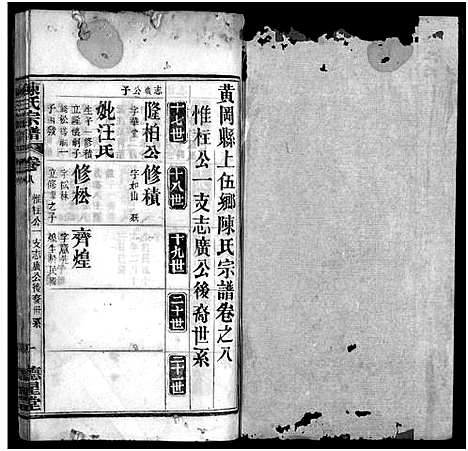 黃岡縣上伍鄉陳氏宗譜卷之八
惟柱公一支志廣公後裔世系
十七世
十八世
十九世
二十世
二十一世
志廣公子
隆柏公
字華堂
妣汪氏
生子一修積
修積
字和山
修松
字松林
齊煌
陳氏宗譜
卷八
惟柱公一支志廣公後裔世系
一
德星堂